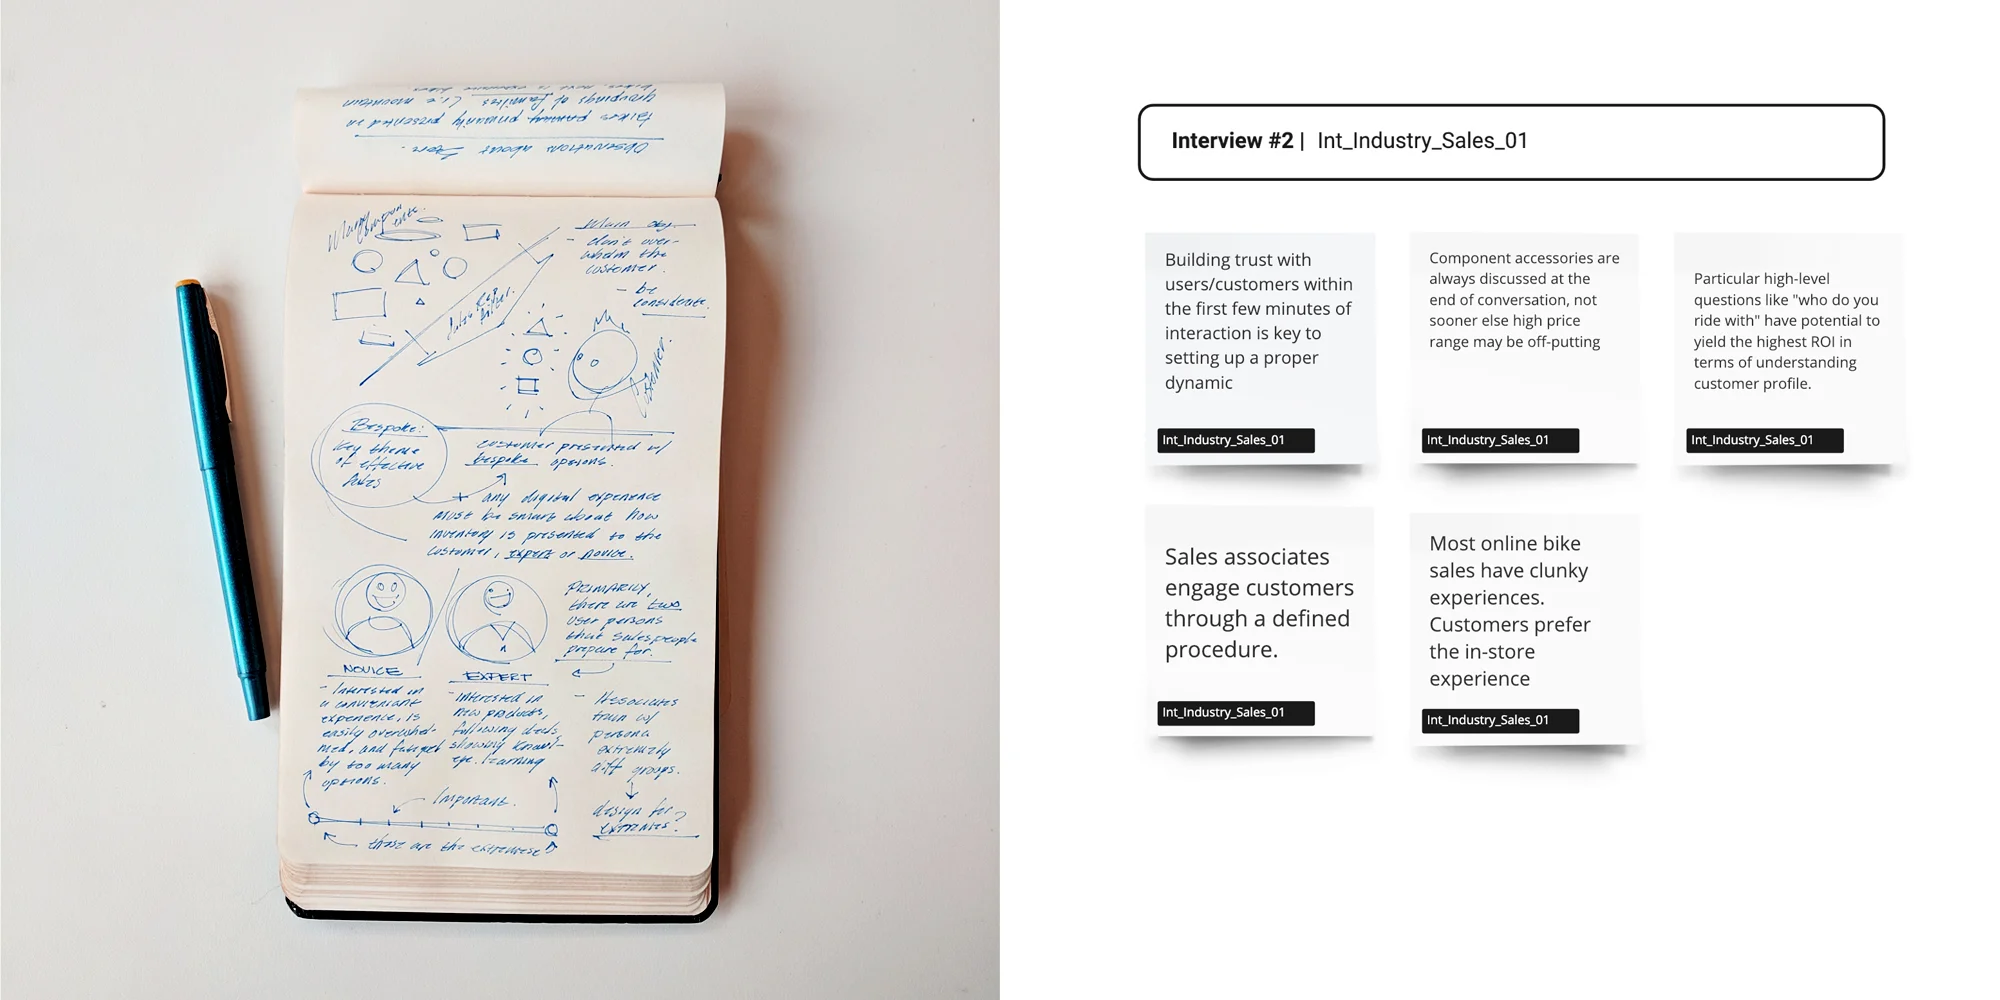 Observations about Store.
bikes primarily presented in
groupings of families (i.e. mountain
Many
Main obj.
- don't over-
whelm the
customer.
- be
considerate.
customer.
Bespoke:
Key theme
of effective
sales
customer presented w/
bespoke options.
+ any digital experience
must be smart about how
inventory is presented to the
customer, expert or novice.
PRIMARILY,
there are two
user persons
that salespeople
prepare for.
NOVICE
- Interested in
a convenient
experience, is
easily overwhel-
med, and fatigued
by too many
options.
EXPERT
- Interested in
new products,
following deals,
showing knowl-
ege. learning
- Associates
train w/
persona
extremity
diff groups.
design for
extremes?
Important.
these are the extremes
Interview #2 | Int_Industry_Sales_01
Building trust with
users/customers within
the first few minutes of
interaction is key to
setting up a proper
dynamic
Int_Industry_Sales_01
Component accessories are
always discussed at the
end of conversation, not
sooner else high price
range may be off-putting
Int_Industry_Sales_01
Particular high-level
questions like "who do you
ride with" have potential to
yield the highest ROI in
terms of understanding
customer profile.
Int_Industry_Sales_01
Sales associates
engage customers
through a defined
procedure.
Int_Industry_Sales_01
Most online bike
sales have clunky
experiences.
Customers prefer
the in-store
experience
Int_Industry_Sales_01